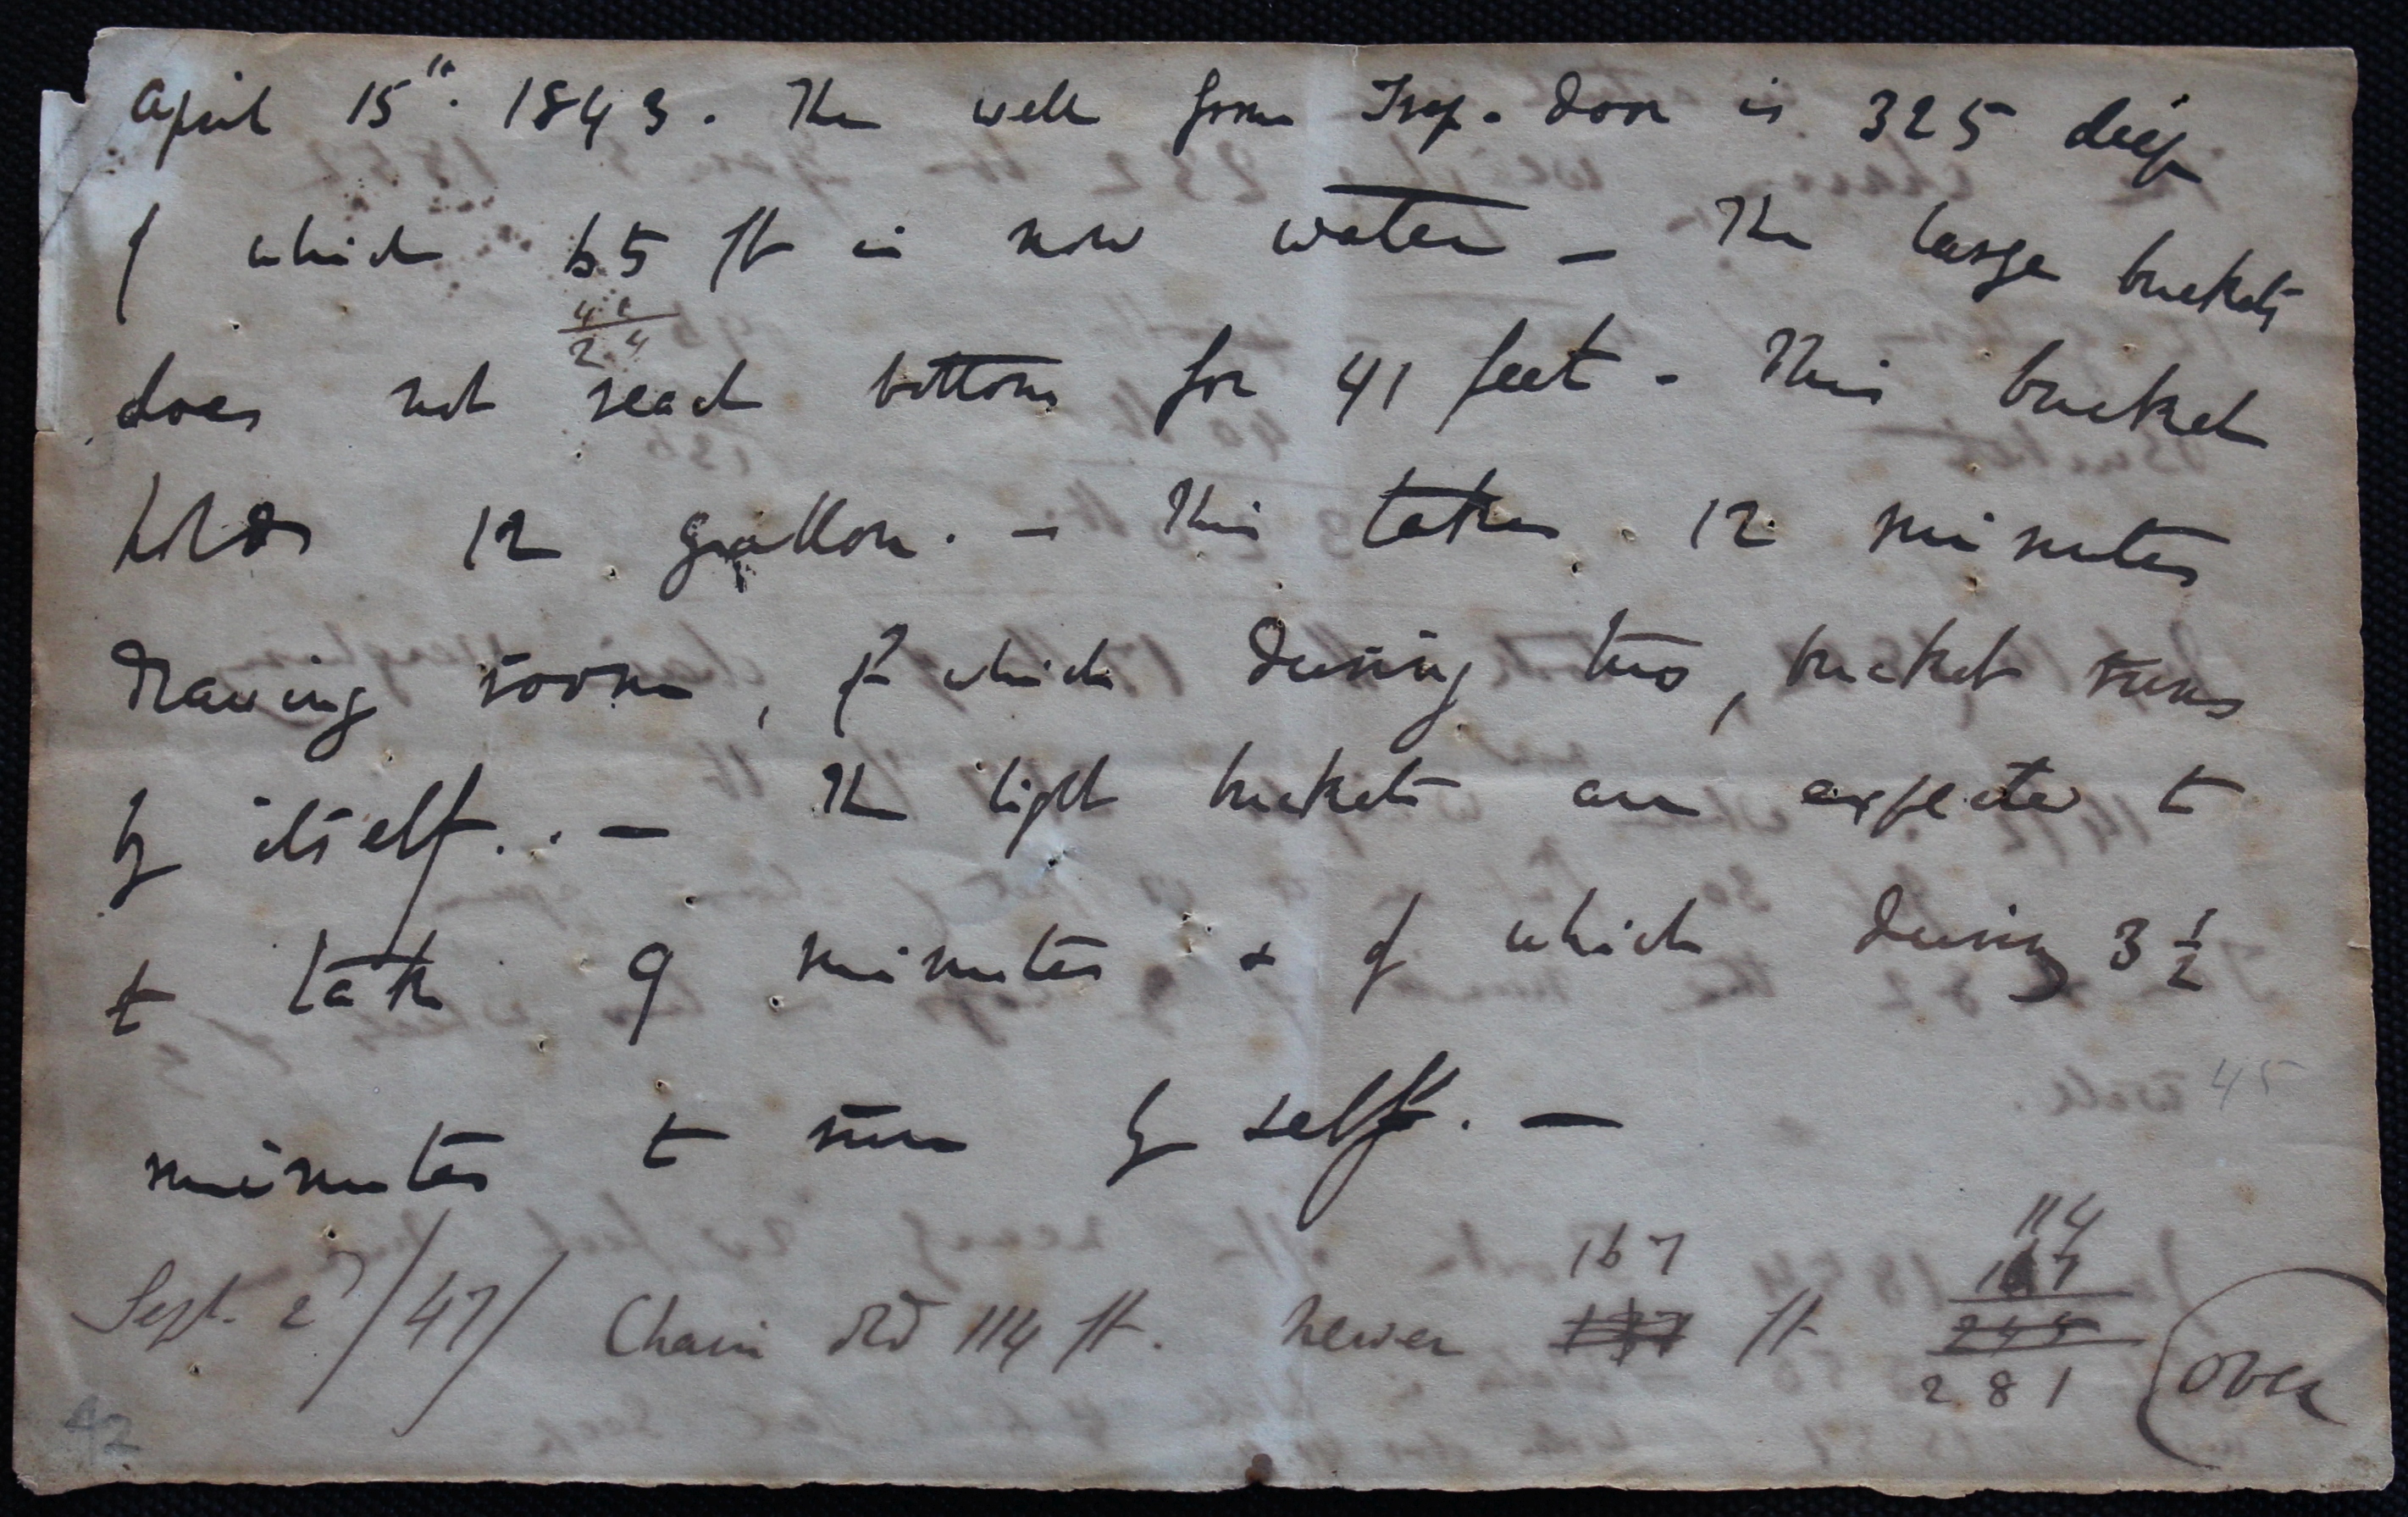 April 15th. 1843. The well from Trap-door is 325 deep
of which 65 ft is now water — The large buckets
41
24
does not reach bottom for 41 feet - This bucket
holds 12 gallon. — This takes 12 minutes
drawing down, of which during two, bucket runs
by itself. . — The light buckets are expected to
to take 9 minutes & of which during 3 1/2
45
minutes to run by self. —
Sept. 2d/47/ Chain old 114 ft. newer 167 ft
114
167
245
281
(over
42